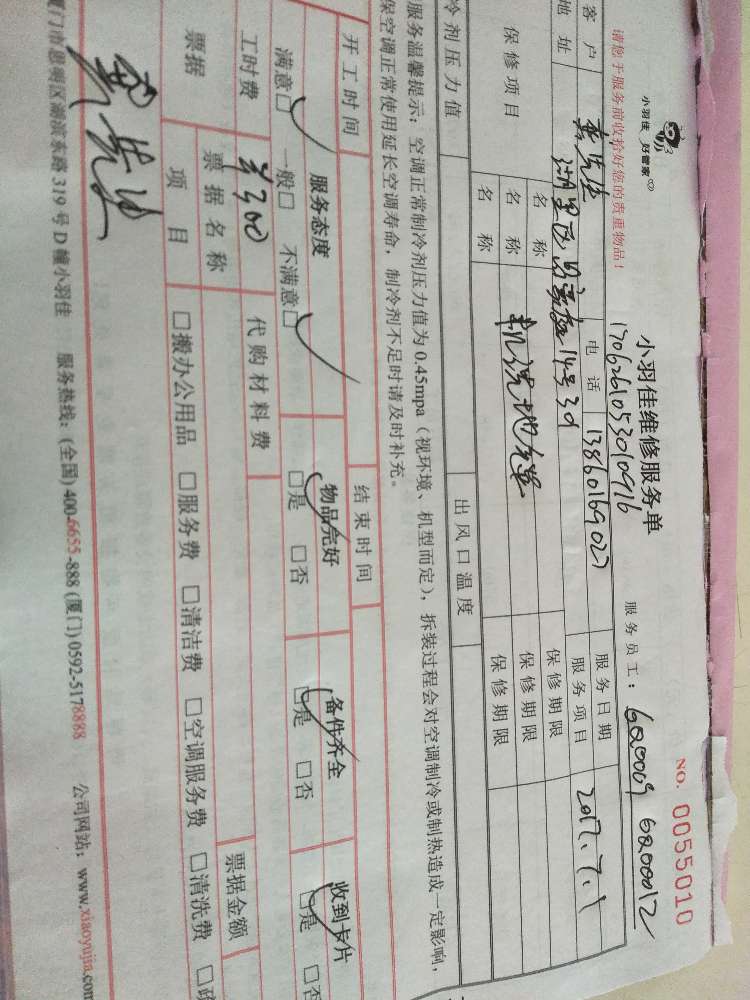 小羽佳 好管家
请您于服务前收拾好您的贵重物品！
小羽佳维修服务单
NO. 0055010
1706261053010916
服务员工：
客户 电话 13860169027 服务日期 2017.7.1
地址 服务项目
保修项目 名称 保修期限
名称 机洗地毯 保修期限
名称 保修期限
冷剂压力值 出风口温度
服务温馨提示：空调正常制冷剂压力值为0.45mpa（视环境、机型而定），拆装过程会对空调制冷或制热造成一定影响，
保空调正常使用延长空调寿命，制冷剂不足时请及时补充。
开工时间 结束时间
服务态度 物品完好 备件齐全 收到卡片
满意□ 一般□ 不满意□ □是 □否 □是 □否 □是 □否
工时费 300 代购材料费
票据 票据名称 票据金额
项目 □搬办公用品 □服务费 □清洁费 □空调服务费 □清洗费
厦门市思明区湖滨东路319号D幢小羽佳 服务热线：(全国) 400-6655-888 (厦门) 0592-5178888 公司网站：www.xiaoyujia.com